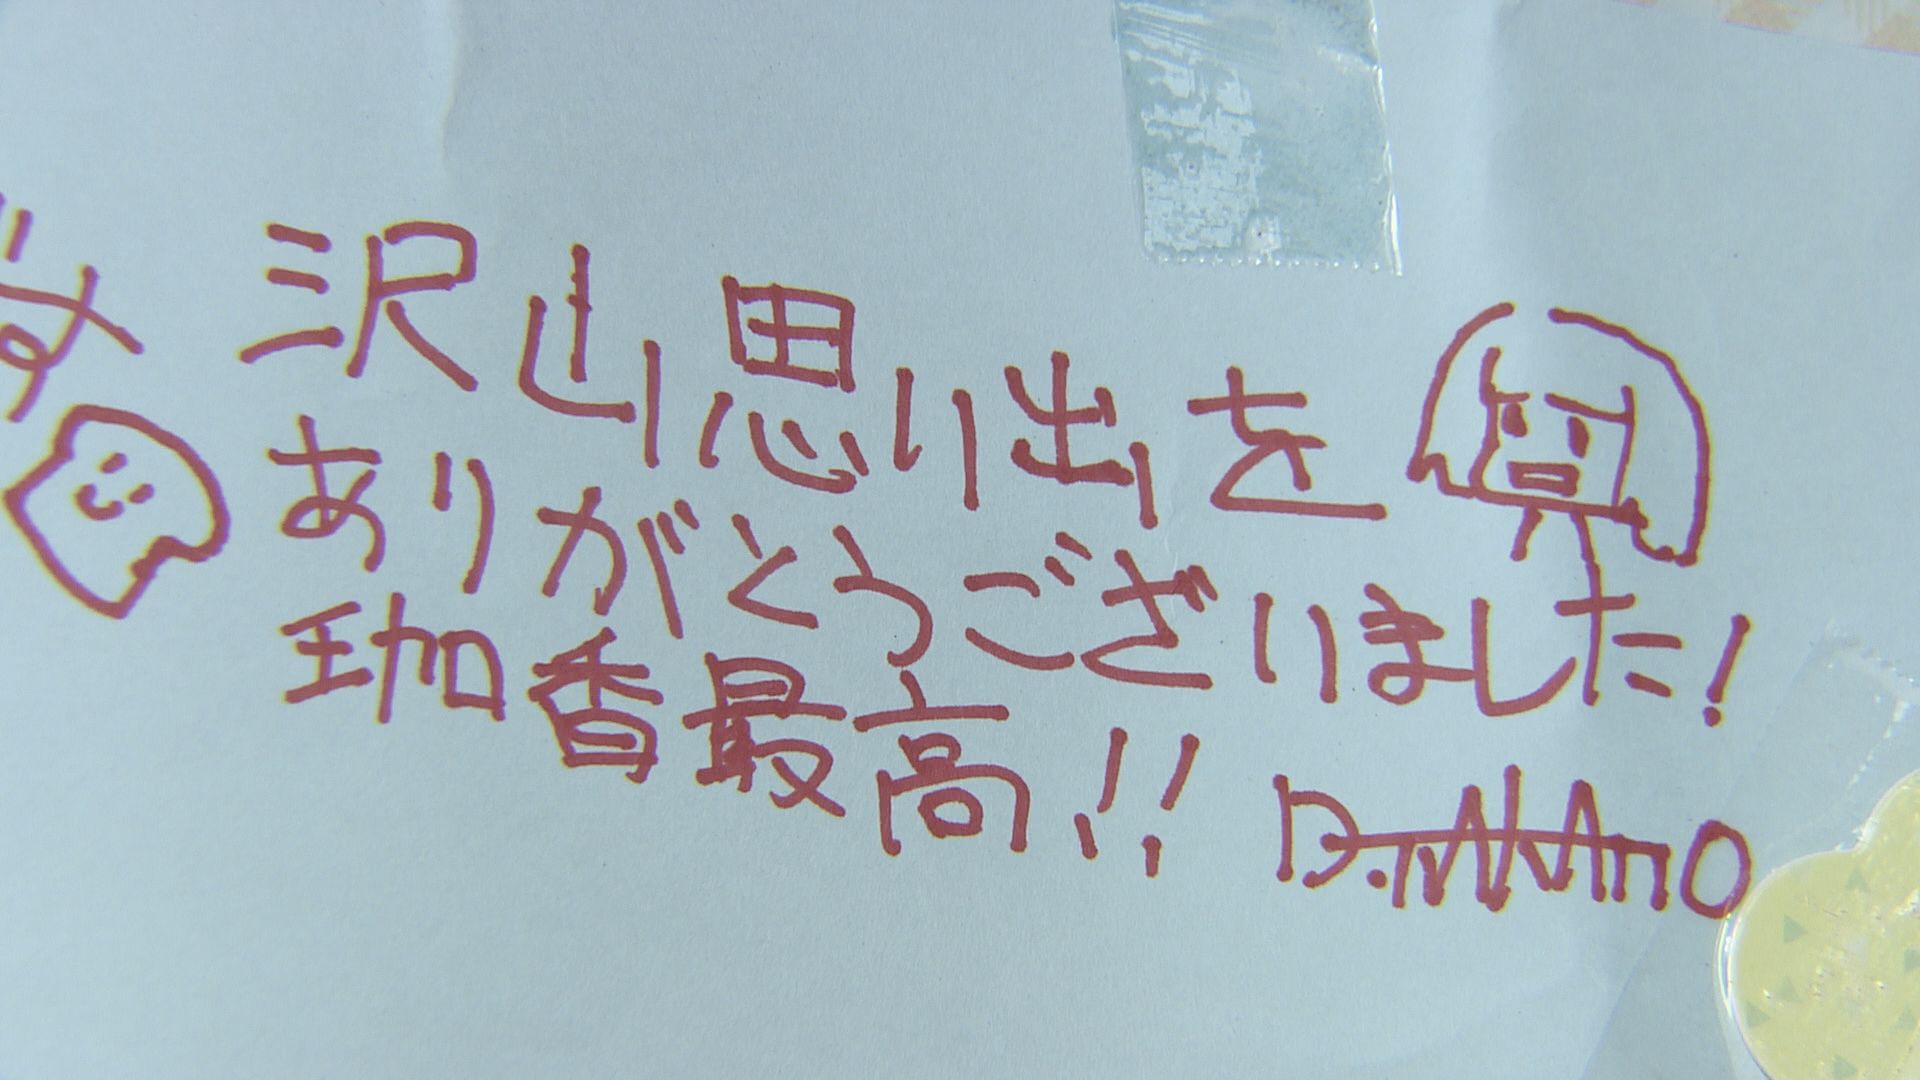 沢山思い出を
ありがとうございました!
珈香最高!!